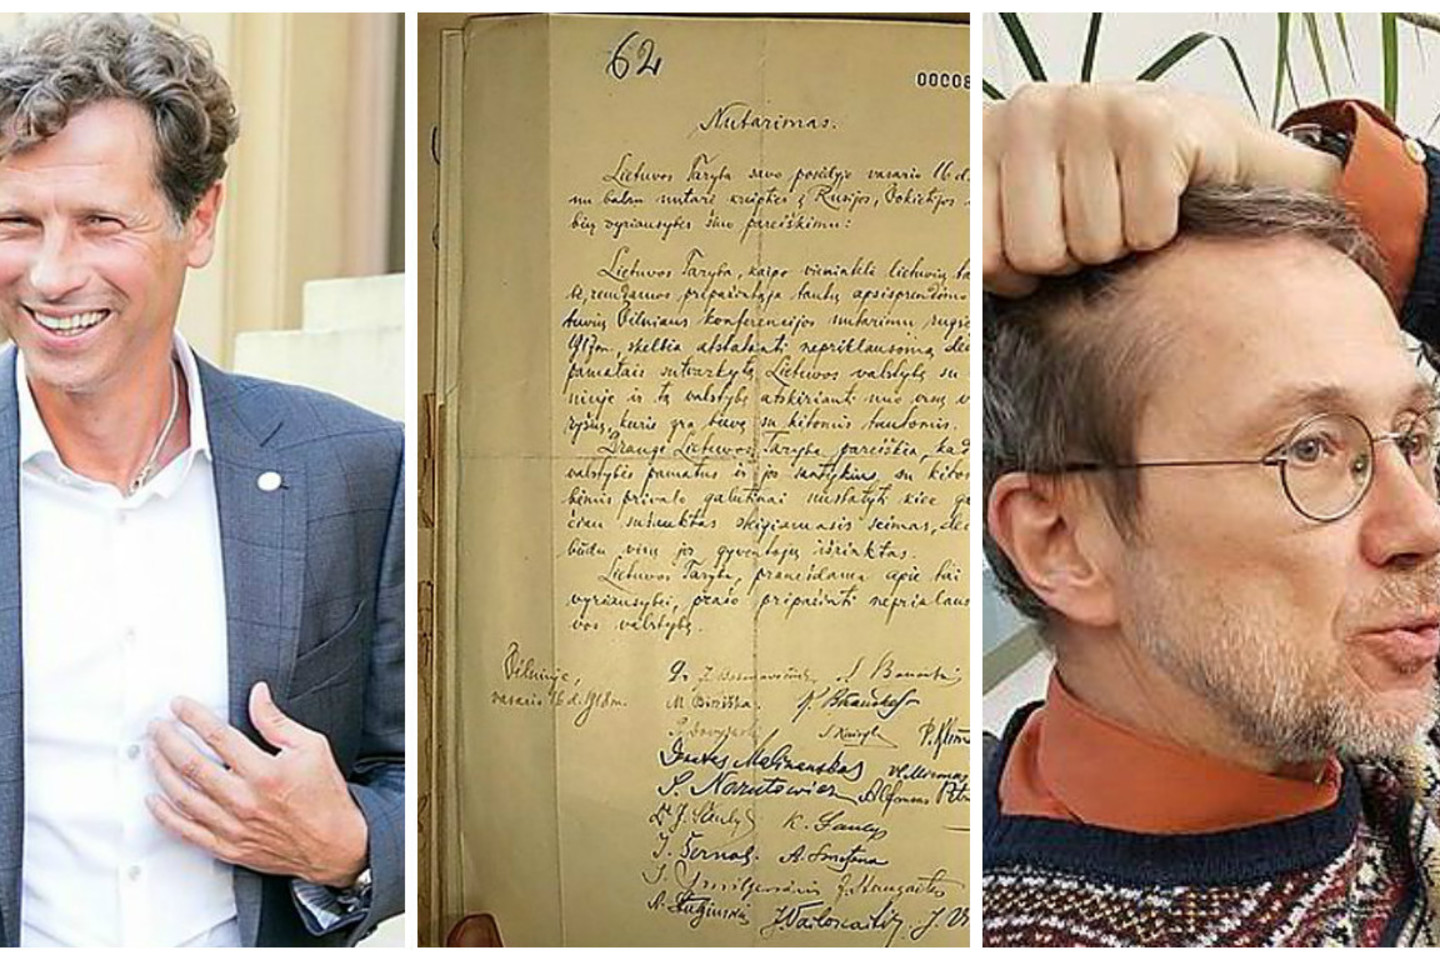 62
00008
Nutarimas.
Lietuvos Taryba savo posėdyje vasario 16 d.
nu balsu nutarė kreipties į Rusijos, Vokietijos
bių vyriausybes šiuo pareiškimu:
Lietuvos Taryba, kaipo vienintelė lietuvių ta
remdamos pripažintąja tautų apsisprendimo
tuvių Vilniaus konferencijos nutarimu rugsė
1917 m., skelbia atstatanti nepriklausomą de
pamatais sutvarkytą Lietuvos valstybę su
ninje ir tą valstybę atskirianti nuo visų v
ryšių, kurie yra buvę su kitomis tautomis.
Drauge Lietuvos Taryba pareiškia, kad
valstybės pamatus ir jos santykius su kito
bėmis privalo galutinai nustatyti kiek ga
čiau sušauktas steigiamasis seimas, de
būdu visų jo gyventojų išrinktas.
Lietuvos Taryba, pranešdama apie tai
vyriausybei, prašo pripažinti nepriklaus
vos valstybę.
Vilniuje,
vasario 16 d. 1918 m.
Dr. J. Basanavičius
M. Biržiška.
K. Bizauskas
Donatas Malinauskas
Vl. Mironas
S. Narutowicz
Alfonsas Pet
Dr J. Šaulys
K. Šaulys
J. Šernas.
A. Smetona
J. Smilgevičius
J. Staugaitis
A. Stulginskis
J. Vailokaitis
J. V